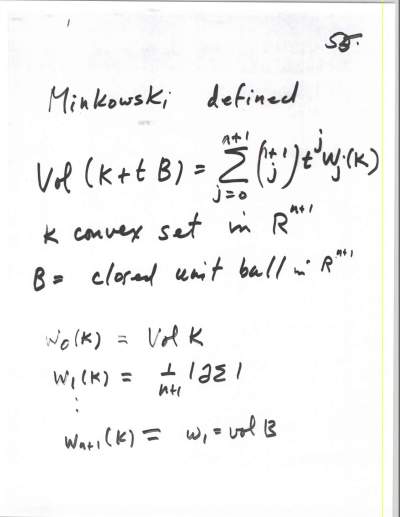 55.
Minkowski defined
Vol (K+t B) = \sum_{j=0}^{n+1} \binom{n+1}{j} t^j W_j(K)
K convex set in R^{n+1}
B = closed unit ball in R^{n+1}
W_0(K) = Vol K
W_1(K) = \frac{1}{n+1} |∂Σ|
⋮
W_{n+1}(K) = W_1 = vol B